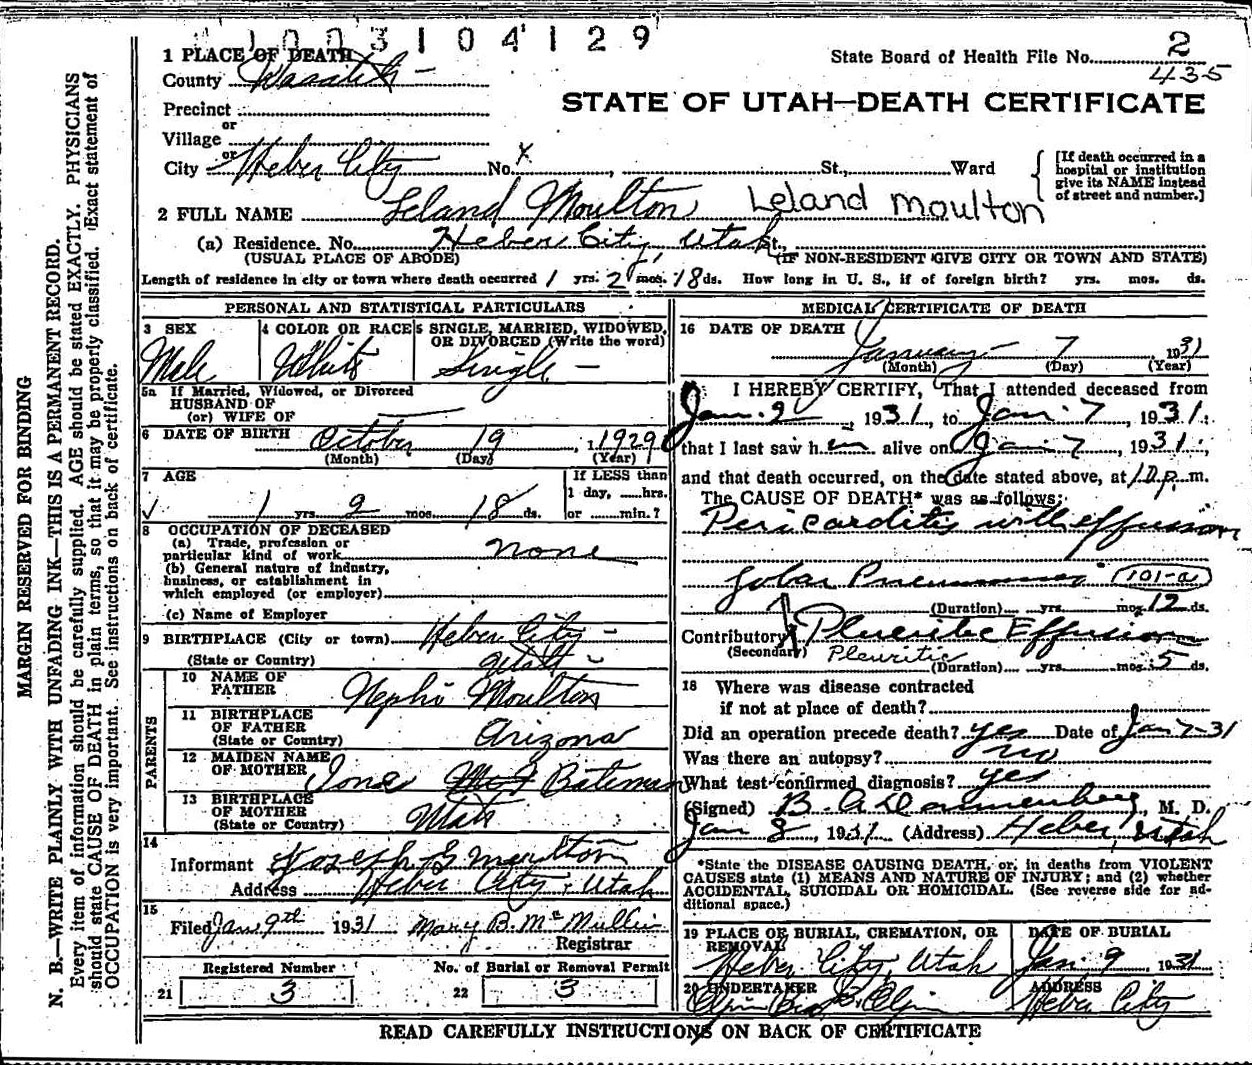 1003104129
1 PLACE OF DEATH
State Board of Health File No. 2
435
County Wasatch
STATE OF UTAH—DEATH CERTIFICATE
Precinct
or
Village
or
City Heber City No. X St., Ward
[If death occurred in a
hospital or institution
give its NAME instead
of street and number.]
2 FULL NAME Leland Moulton Leland Moulton
(a) Residence. No. Heber City, Utah St.,
(USUAL PLACE OF ABODE) (IF NON-RESIDENT GIVE CITY OR TOWN AND STATE)
Length of residence in city or town where death occurred 1 yrs. 2 mos. 18 ds. How long in U. S., if of foreign birth? yrs. mos. ds.
PERSONAL AND STATISTICAL PARTICULARS
3 SEX 4 COLOR OR RACE 5 SINGLE, MARRIED, WIDOWED,
OR DIVORCED (Write the word)
Male White Single —
5a If Married, Widowed, or Divorced
HUSBAND OF
(or) WIFE OF —
6 DATE OF BIRTH October 19, 1929
(Month) (Day) (Year)
7 AGE If LESS than
1 day, ......hrs.
√ 1 yrs. 2 mos. 18 ds. or ......min.?
8 OCCUPATION OF DECEASED
(a) Trade, profession or
particular kind of work none
(b) General nature of industry,
business, or establishment in
which employed (or employer)
(c) Name of Employer
9 BIRTHPLACE (City or town) Heber City —
(State or Country) Utah —
PARENTS
10 NAME OF
FATHER Nephi Moulton
11 BIRTHPLACE
OF FATHER
(State or Country) Arizona
12 MAIDEN NAME
OF MOTHER Bateman
13 BIRTHPLACE
OF MOTHER
(State or Country) Utah
14
Informant Joseph E Moulton
Address Heber City, Utah
15
Filed Jan 9th 1931 Mary B. McMullin
Registrar
Registered Number No. of Burial or Removal Permit
21 3 22 3
MEDICAL CERTIFICATE OF DEATH
16 DATE OF DEATH
January — 7, 1931
(Month) (Day) (Year)
I HEREBY CERTIFY, That I attended deceased from
Jan. 2, 1931, to Jan. 7, 1931;
that I last saw him alive on Jan 7, 1931;
and that death occurred, on the date stated above, at 10 p. m.
The CAUSE OF DEATH* was as follows:
Pericarditis with effusion
Lobar Pneumonia 101-a
(Duration) yrs. mos. 12 ds.
Contributory Pleuritic Effusion
(Secondary) Pleuritic
(Duration) yrs. mos. 5 ds.
18 Where was disease contracted
if not at place of death?
Did an operation precede death? yes Date of Jan 7-31
Was there an autopsy? no
What test confirmed diagnosis? yes
(Signed) B. A. Dannenberg, M. D.
Jan 8, 1931 (Address) Heber, Utah
*State the DISEASE CAUSING DEATH, or, in deaths from VIOLENT
CAUSES state (1) MEANS AND NATURE OF INJURY; and (2) whether
ACCIDENTAL, SUICIDAL OR HOMICIDAL. (See reverse side for ad-
ditional space.)
19 PLACE OF BURIAL, CREMATION, OR
REMOVAL
Heber City, Utah
DATE OF BURIAL
Jan. 9, 1931
20 UNDERTAKER
Olpin
ADDRESS
Heber City
READ CAREFULLY INSTRUCTIONS ON BACK OF CERTIFICATE
MARGIN RESERVED FOR BINDING
N. B.—WRITE PLAINLY WITH UNFADING INK—THIS IS A PERMANENT RECORD.
Every item of information should be carefully supplied. AGE should be stated EXACTLY. PHYSICIANS
should state CAUSE OF DEATH in plain terms, so that it may be properly classified. Exact statement of
OCCUPATION is very important. See instructions on back of certificate.